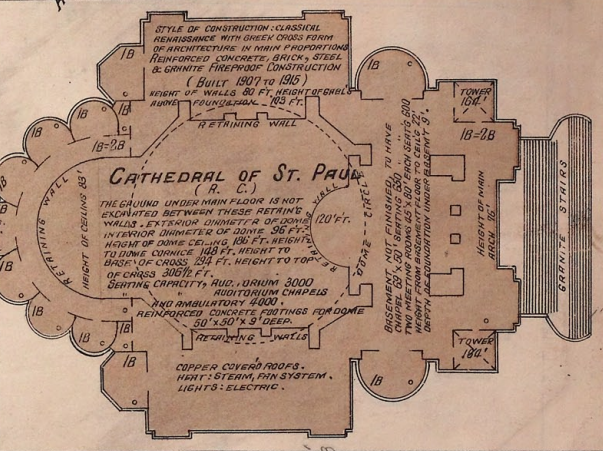 STYLE OF CONSTRUCTION: CLASSICAL
RENAISSANCE WITH GREEK CROSS FORM
OF ARCHITECTURE IN MAIN PROPORTIONS
REINFORCED CONCRETE, BRICK, STEEL
& GRANITE FIREPROOF CONSTRUCTION
( BUILT 1907 TO 1915 )
HEIGHT OF WALLS 80 FT. HEIGHT OF GABLE
ABOVE FOUNDATION 103 FT.
RETAINING WALL
CATHEDRAL OF ST. PAUL
( R. C. )
THE GROUND UNDER MAIN FLOOR IS NOT
EXCAVATED BETWEEN THESE RETAIN'G
WALLS. EXTERIOR DIAMETER OF DOME
120' FT.
INTERIOR DIAMETER OF DOME 96 FT.
HEIGHT OF DOME CEILING 186 FT. HEIGHT
TO DOME CORNICE 148 FT. HEIGHT TO
BASE OF CROSS 294 FT. HEIGHT TO TOP
OF CROSS 306 1/2 FT.
SEATING CAPACITY, AUDITORIUM 3000
AUDITORIUM CHAPELS
AND AMBULATORY 4000.
REINFORCED CONCRETE FOOTINGS FOR DOME
50' X 50' X 9' DEEP.
RETAINING WALLS
COPPER COVER'D ROOFS.
HEAT: STEAM, FAN SYSTEM.
LIGHTS: ELECTRIC.
RETAINING WALL
HEIGHT OF CEILING 83'
RETAIN'G WALL
DOME CIRCLE
BASEMENT NOT FINISHED, TO HAVE
CHAPEL 69' X 50' SEATING 650
TWO MEETING ROOMS 45' X 80' EACH SEAT'G 600
HEIGHT FROM BASEMENT FLOOR TO CEIL'G 22'
DEPTH OF FOUNDATION UNDER BASEM'T 9'.
HEIGHT OF MAIN
ARCH 76'
GRANITE STAIRS
TOWER
164'
1B=2B
TOWER
164'
1B
1B
1B
1B
1B=2B
1B
1B
1B
1B
1B
1B
1B
1B